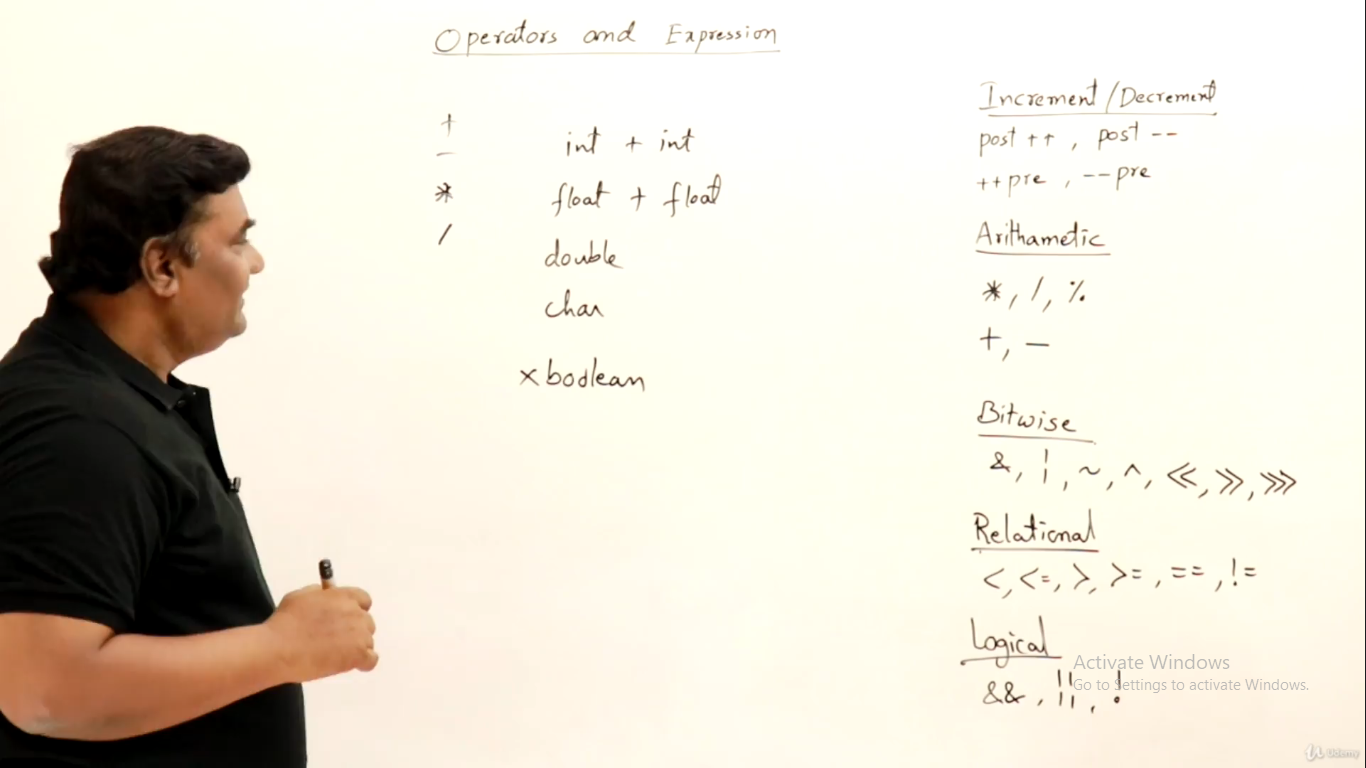 Operators and Expression
+
−
*
/
int + int
float + float
double
char
× boolean
Increment/Decrement
post ++ , post --
++pre , --pre
Arithametic
* , / , %
+ , −
Bitwise
& , ¦ , ~ , ^ , << , >> , >>>
Relational
< , <= , > , >= , == , !=
Logical
&& , ¦¦ , !
Activate Windows
Go to Settings to activate Windows.
Udemy